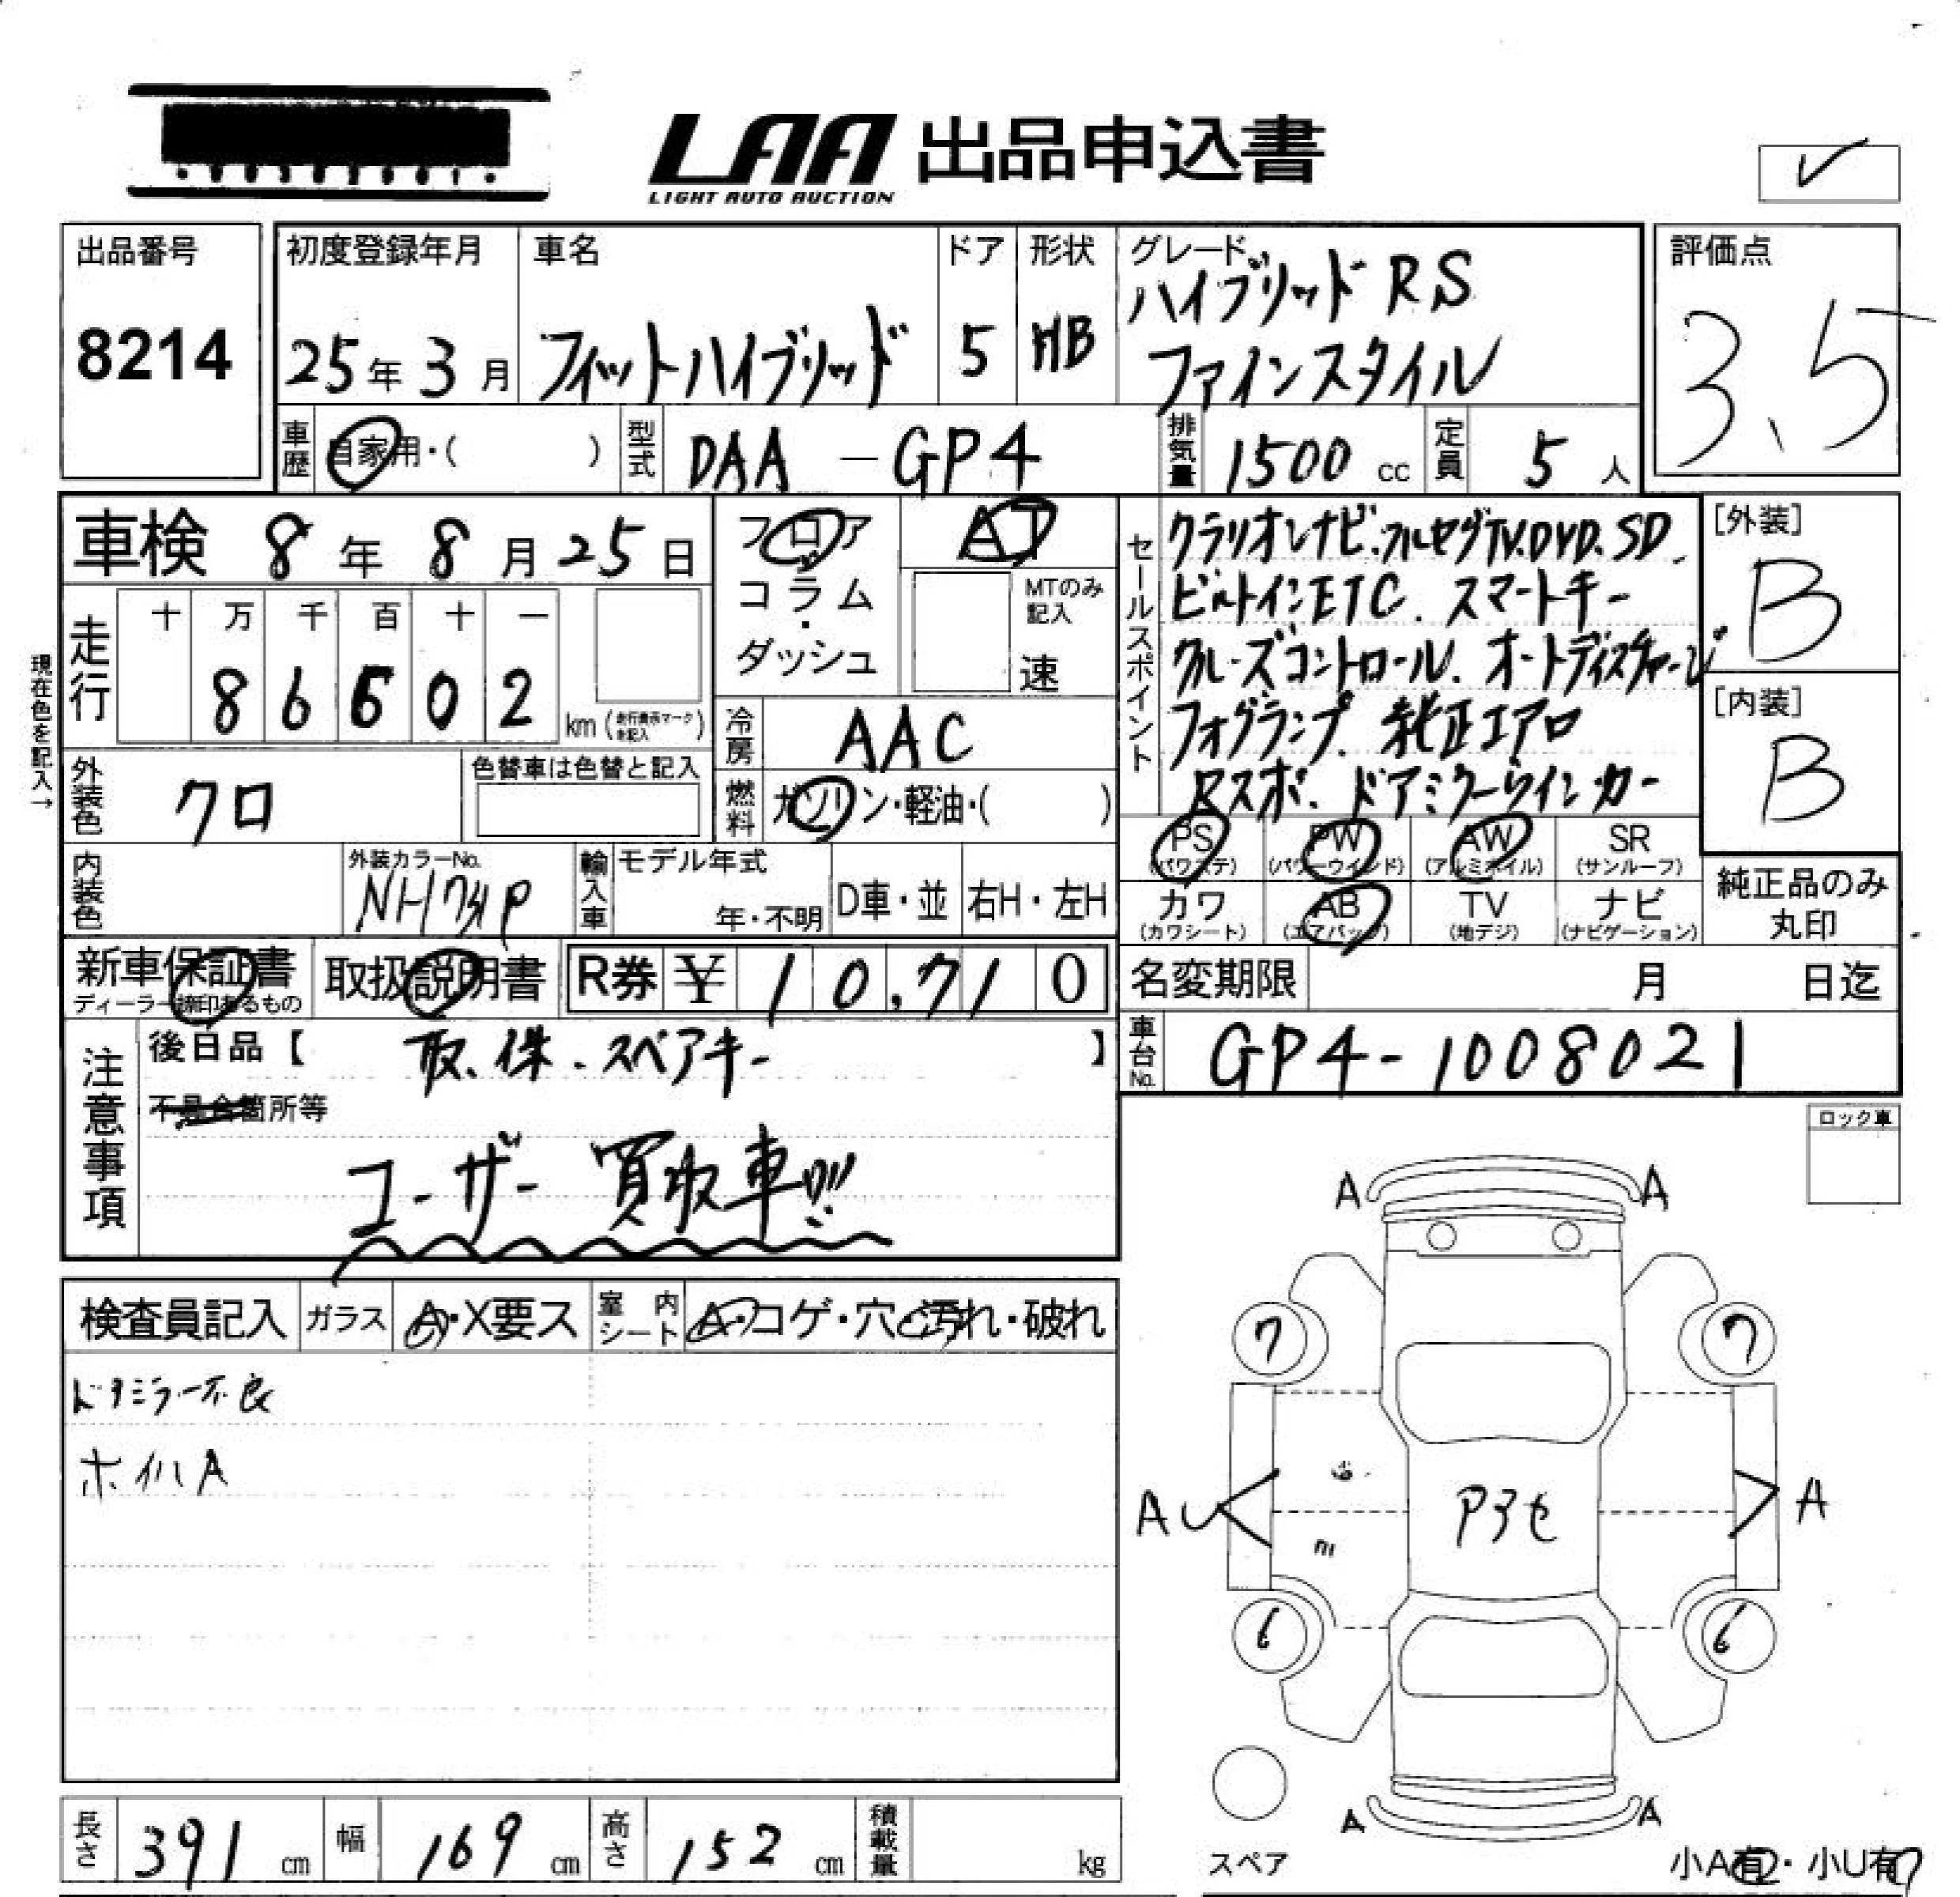 LAA 出品申込書
LIGHT AUTO AUCTION
出品番号
8214
初度登録年月
25年3月
車名
フィットハイブリッド
ドア
5
形状
HB
グレード
ハイブリッド RS
ファインスタイル
評価点
3.5
車歴
自家用・( )
型式
DAA-GP4
排気量
1500 cc
定員
5 人
車検 8年8月25日
フロア
コラム
・
ダッシュ
AT
MTのみ
記入
速
走行
十 万 千 百 十 一
8 6 5 0 2
km (走行表示マークを記入)
現在色を記入→
冷房
AAC
外装色
クロ
色替車は色替と記入
燃料
ガソリン・軽油・( )
セールスポイント
クラリオンナビ.フルセグTV.DVD.SD.
ビルトインETC. スマートキー
クルーズコントロール. オートディスチャージ
フォグランプ. 純正エアロ
Rスポ. ドアミラーウインカー
[外装]
B
[内装]
B
PS
(パワステ)
PW
(パワーウインド)
AW
(アルミホイル)
SR
(サンルーフ)
カワ
(カワシート)
AB
(エアバッグ)
TV
(地デジ)
ナビ
(ナビゲーション)
純正品のみ
丸印
内装色
外装カラーNo.
NH731P
輸入車
モデル年式
年・不明
D車・並
右H・左H
新車保証書
ディーラー捺印あるもの
取扱説明書
R券 ¥ 10,710
名変期限 月 日迄
車台No.
GP4-1008021
注意事項
後日品【 取.保.スペアキー 】
不具合箇所等
ユーザー買取車!!!
ロック車
検査員記入
ガラス
A・X要ス
室内シート
A・コゲ・穴・汚れ・破れ
ドアミラー不良
ホイルA
A A
7 7
AU A
6 6
A A
スペア
小A有・小U有
長さ 391 cm
幅 169 cm
高さ 152 cm
積載量 kg